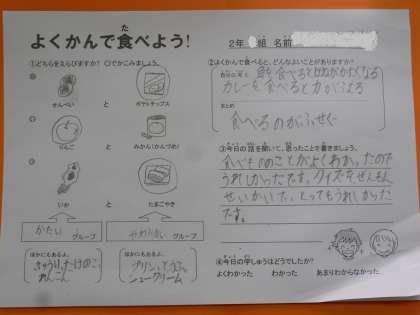 よくかんで食べよう!
2年 組 名前
①どちらをえらびますか? ○でかこみましょう。
せんべい と ポテトチップス
りんご と みかん(かんづめ)
いか と たまごやき
かたい グループ
やわらかい グループ
ほかにもあるよ。
きゅうり、たけのこ、
れんこん
ほかにもあるよ。
プリン、とうふ、
シュークリーム
②よくかんで食べると、どんなよいことがありますか?
を食べると
カレーを食べると
まとめ
③今日の話を聞いて、思ったことを書きましょう。
食べもののことがよくわかったので
うれしかったです。クイズもぜんもん
せいかいで、とってもうれしかった
です。
④今日の学しゅうはどうでしたか?
よくわかった わかった あまりわからなかった